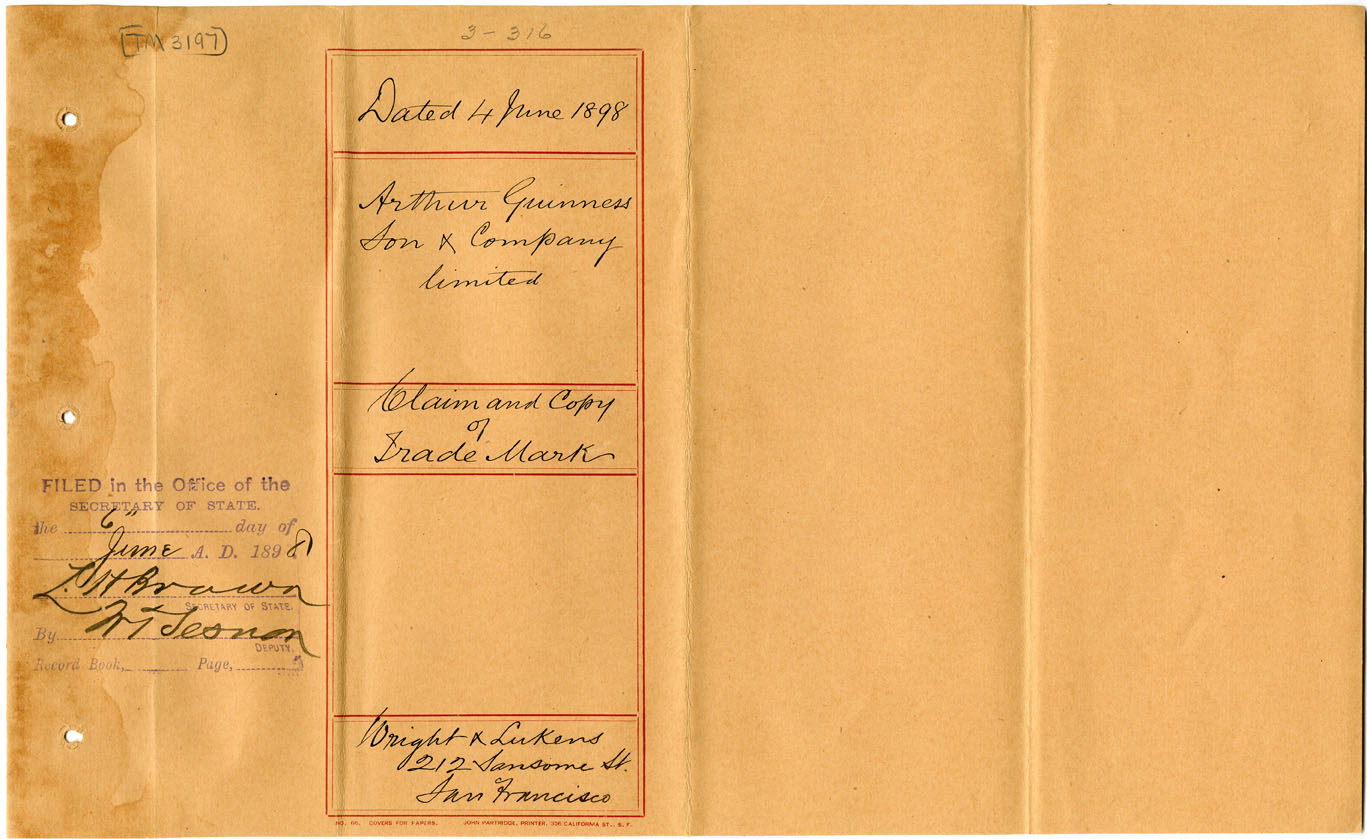 TM 3197
3-316
Dated 4 June 1898
Arthur Guinness
Son & Company
limited
Claim and Copy
of
Trade Mark
FILED in the Office of the
SECRETARY OF STATE.
the 6" day of
June A. D. 1898
L. H Brown
SECRETARY OF STATE.
By W T Sesnon
DEPUTY.
Record Book, Page,
Wright & Lukens
212 Sansome St.
San Francisco
NO. 66. COVERS FOR PAPERS. JOHN PARTRIDGE, PRINTER, 306 CALIFORNIA ST., S. F.